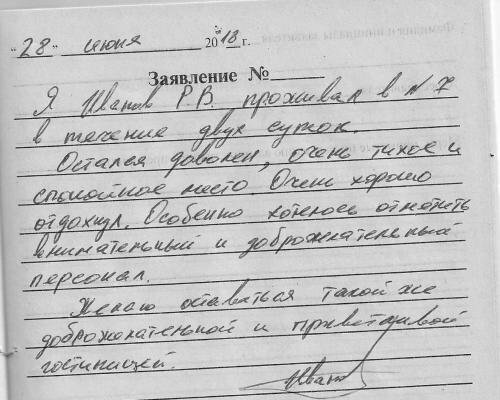 "28" июня 2018 г.
Заявление №
Я Иванов Р.В. проживал в N 7
в течение двух суток.
Остался доволен, очень тихое и
спокойное место Очень хорошо
отдохнул. Особенно хотелось отметить
внимательный и доброжелательный
персонал.
Желаю оставаться такой же
доброжелательной и приветливой
гостиницей.
Иван